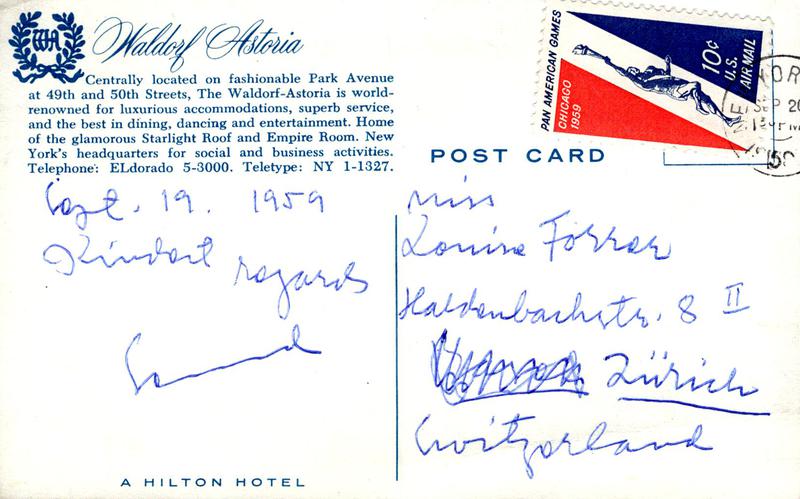 WA
Waldorf Astoria
Centrally located on fashionable Park Avenue
at 49th and 50th Streets, The Waldorf-Astoria is world-
renowned for luxurious accommodations, superb service,
and the best in dining, dancing and entertainment. Home
of the glamorous Starlight Roof and Empire Room. New
York's headquarters for social and business activities.
Telephone: ELdorado 5-3000. Teletype: NY 1-1327.
Sept. 19. 1959
Kindest
regards
A HILTON HOTEL
PAN AMERICAN GAMES
CHICAGO
1959
10¢
U.S.
AIR MAIL
SEP 20
POST CARD
Miss
Louise Forrer
Haldenbachstr. 8 II
Zürich
Switzerland